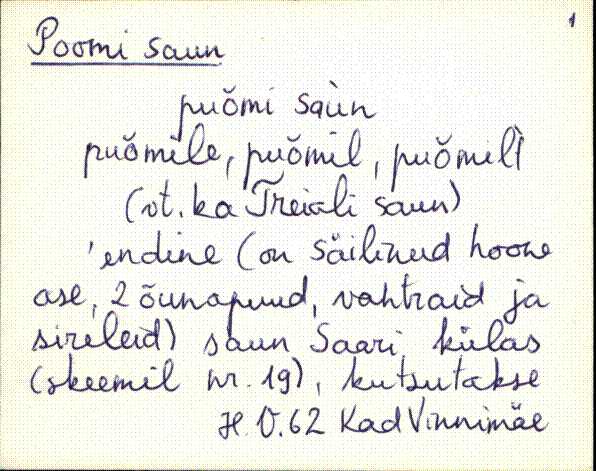 1
Poomi saun
puŏmi saùn
puŏmile, puŏmil, puŏmelt̀
(vt. ka Treiali saun)
'endine (on säilinud hoone
ase, 2 õunapuud, vahtraid ja
sireleid) saun Saari külas
(skeemil nr. 19), kutsutakse
H. V. 62 Kad Vinnimäe